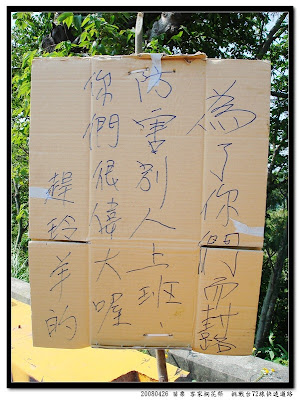 為了你們而封路
防害別人上班！
你們很偉大喔
趕羚羊的
20080426 苗栗 客家桐花祭 挑戰台72線快速道路